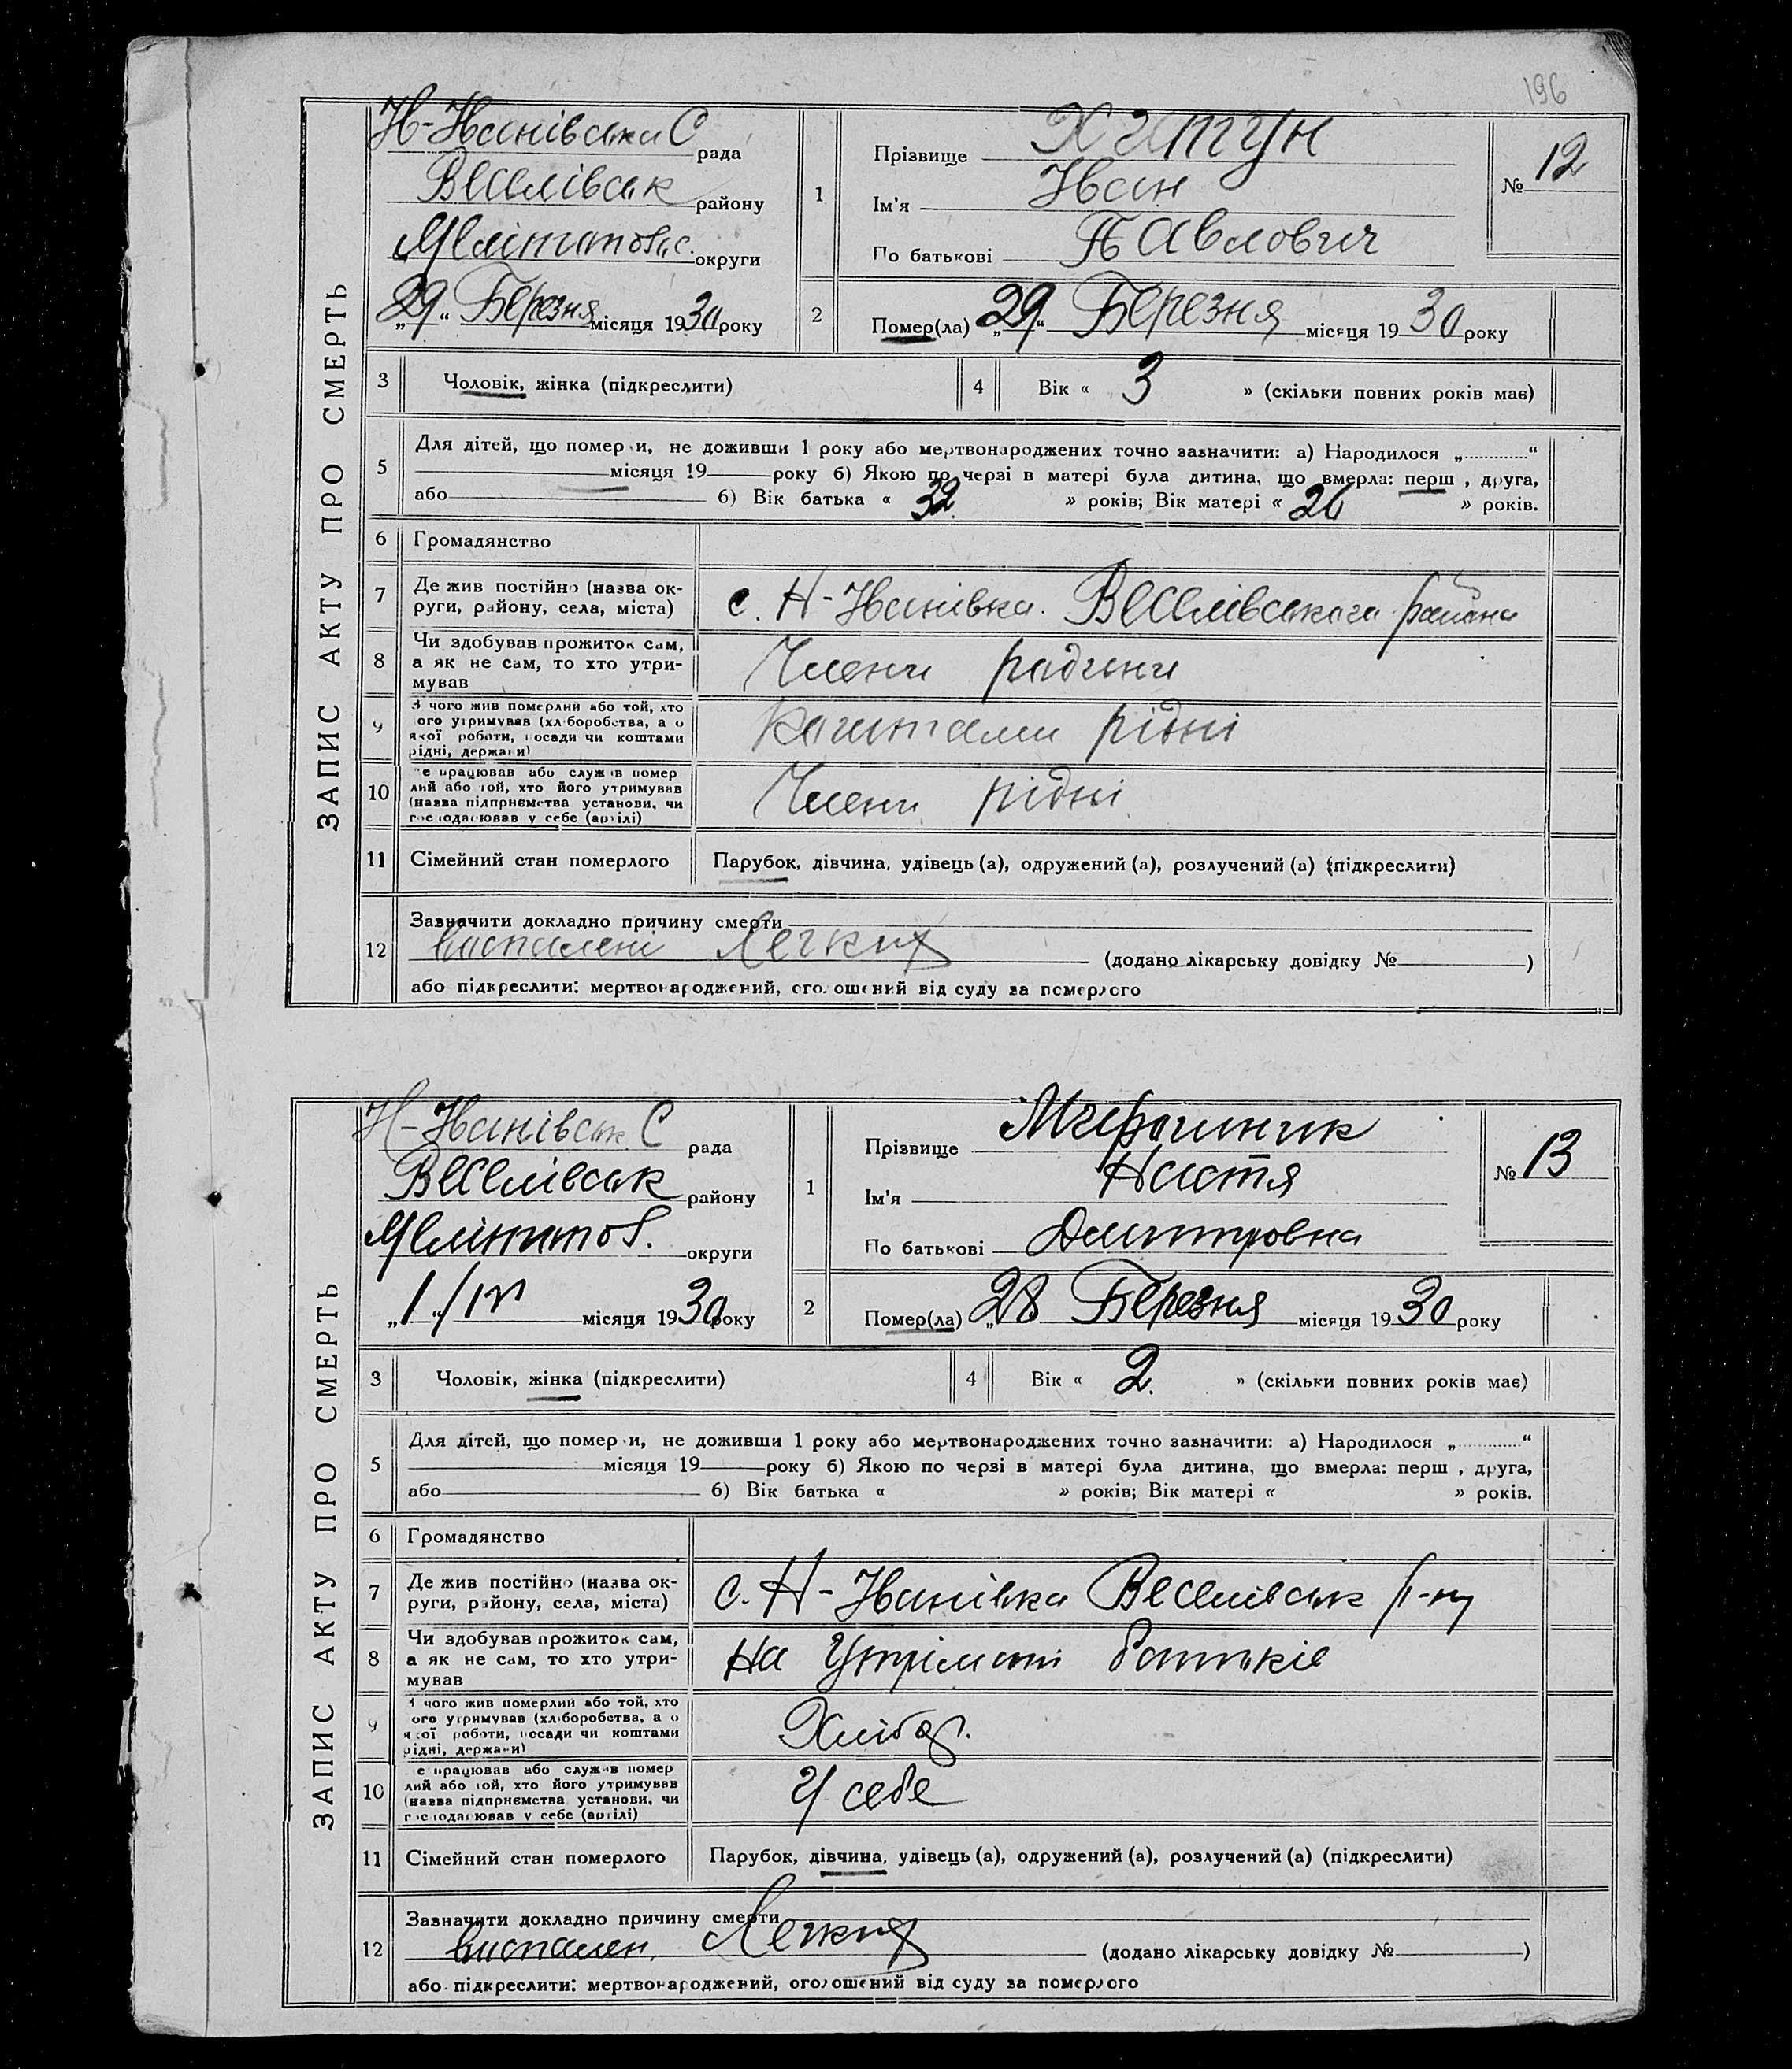 196
ЗАПИС АКТУ ПРО СМЕРТЬ
Н-Иванівська С рада
Веселівськ району
Мелітопол. округи
„29“ Березня місяця 1930 року
1
Прізвище
Ім'я Иван
По батькові Павлович
№ 12
2
Помер(ла) „29“ Березня місяця 1930 року
3 Чоловік, жінка (підкреслити)
4 Вік « 3 » (скільки повних років має)
5
Для дітей, що померли, не доживши 1 року або мертвонароджених точно зазначити: а) Народилося „ “
місяця 19 року б) Якою по черзі в матері була дитина, що вмерла: перш , друга,
або б) Вік батька « 32 » років; Вік матері « 26 » років.
6 Громадянство
7 Де жив постійно (назва ок-
руги, району, села, міста)
с. Н-Иванівка. Веселівського района
8 Чи здобував прожиток сам,
а як не сам, то хто утри-
мував
Члени родини
9 З чого жив померлий або той, хто
ого утримував (хліборобства, а о
якої роботи, посади чи коштами
рідні, держави)
Коштами рідні
10 е працював або служив помер
лий або той, хто його утримував
(назва підприємства установи, чи
господарював у себе (артілі)
Члени рідні
11 Сімейний стан померлого
Парубок, дівчина, удівець (а), одружений (а), розлучений (а) (підкреслити)
12 Зазначити докладно причину смерти
Воспалені Легких (додано лікарську довідку № )
або підкреслити: мертвонароджений, оголошений від суду за померлого
ЗАПИС АКТУ ПРО СМЕРТЬ
Н-Иванівськ. С рада
Веселівськ району
Мелітопол. округи
„1“/IV місяця 1930 року
1
Прізвище
Ім'я Настя
По батькові Дмитровна
№ 13
2
Помер(ла) „28 Березня місяця 1930 року
3 Чоловік, жінка (підкреслити)
4 Вік « 2. » (скільки повних років має)
5
Для дітей, що померли, не доживши 1 року або мертвонароджених точно зазначити: а) Народилося „ “
місяця 19 року б) Якою по черзі в матері була дитина, що вмерла: перш , друга,
або б) Вік батька « » років; Вік матері « » років.
6 Громадянство
7 Де жив постійно (назва ок-
руги, району, села, міста)
с. Н-Иванівка Веселівськ р-ну
8 Чи здобував прожиток сам,
а як не сам, то хто утри-
мував
на Утріманні батьків
9 З чого жив померлий або той, хто
ого утримував (хліборобства, а о
якої роботи, посади чи коштами
рідні, держави)
Хлібор.
10 е працював або служив помер
лий або той, хто його утримував
(назва підприємства установи, чи
господарював у себе (артілі)
У себе
11 Сімейний стан померлого
Парубок, дівчина, удівець (а), одружений (а), розлучений (а) (підкреслити)
12 Зазначити докладно причину смерти
Воспален. Легких (додано лікарську довідку № )
або підкреслити: мертвонароджений, оголошений від суду за померлого